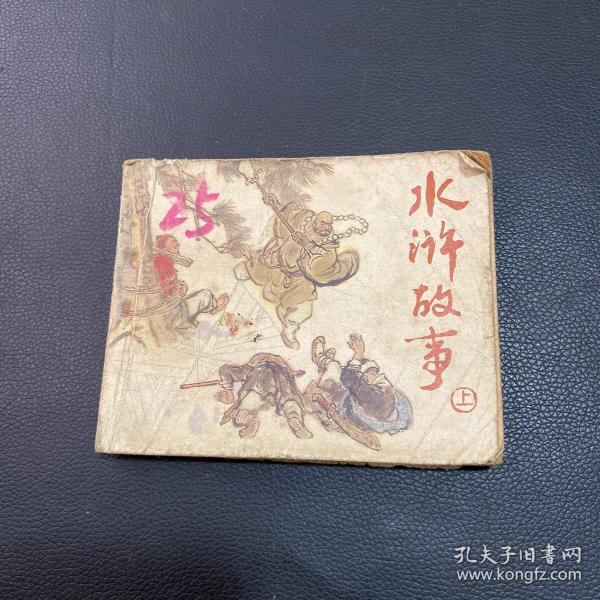 25
水浒故事
上
孔夫子旧书网
www.kongfz.com